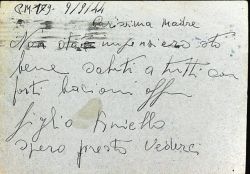 RM-179- 9/9/44
Carissima Madre
Non stai in pensiero sto
bene saluti a tutti con
forti bacioni aff
figlio Aniello
spero presto Vederci